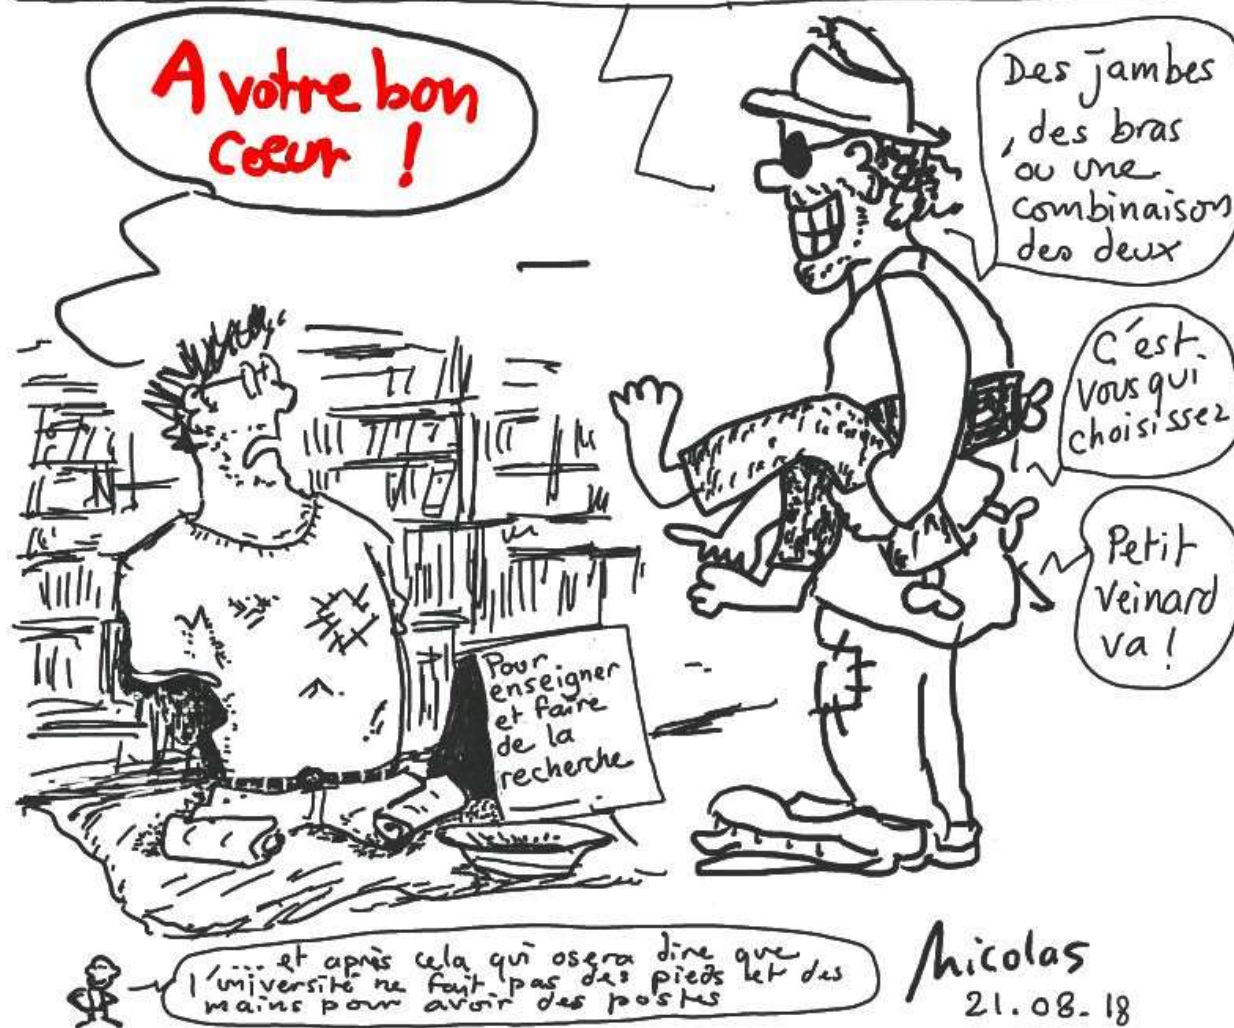 A votre bon
cœur !
Des jambes
, des bras
ou une
combinaison
des deux
C'est
vous qui
choisissez
Petit
veinard
va !
Pour
enseigner
et faire
de la
recherche
.... et après cela qui osera dire que
l'université ne fait pas des pieds et des
mains pour avoir des postes
Nicolas
21.08.18